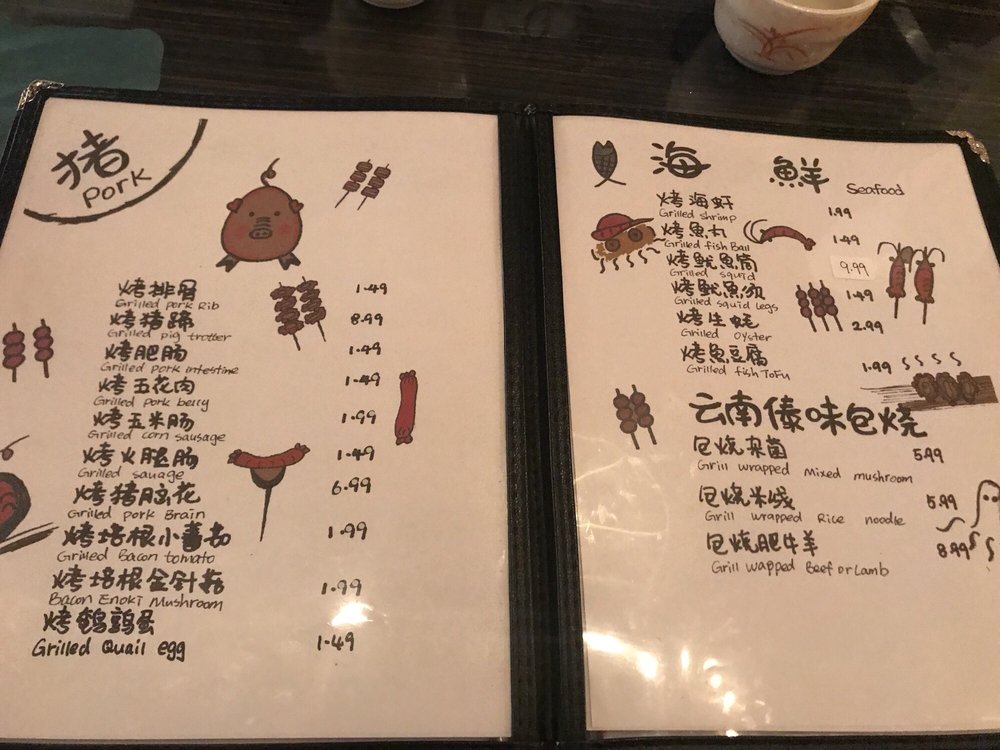 猪
Pork
烤排骨 1.49
Grilled pork Rib
烤猪蹄 8.99
Grilled pig trotter
烤肥肠 1.49
Grilled pork intestine
烤五花肉 1.49
Grilled pork berly
烤玉米肠 1.99
Grilled corn sausage
烤火腿肠 1.49
Grilled sauage
烤猪脑花 6.99
Grilled pork Brain
烤培根小番茄 1.99
Grilled Bacon tomato
烤培根金针菇 1.99
Bacon Enoki Mushroom
烤鹌鹑蛋 1.49
Grilled Quail egg
海鮮 Seafood
烤海虾 1.99
Grilled shrimp
烤魚丸 1.49
Grilled fish Ball
烤魷魚筒 9.99
Grilled squid
烤魷魚须 1.49
Grilled squid legs
烤生蚝 2.99
Grilled oyster
烤魚豆腐 1.99
Grilled fish ToFu
云南傣味包烧
包烧杂菌 5.99
Grill wrapped Mixed mushroom
包烧米线 5.99
Grill wrapped Rice noodle
包烧肥牛羊 8.99
Grill wapped Beef or Lamb